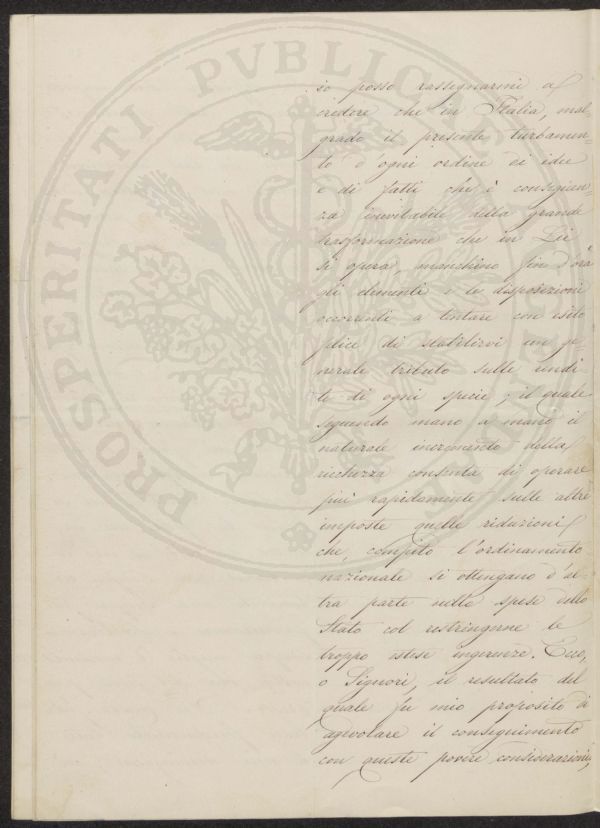 PROSPERITATI PVBLICAE
io posso rassegnarmi a
credere che in Italia, mal-
grado il presente turbamen-
to d'ogni ordine di idee
e di fatti che è conseguen-
za inevitabile della grande
trasformazione che in Lei
si opera, manchino fin d'ora
gli elementi e le disposizioni
occorrenti a tentare con esito
felice di stabilirvi un ge-
nerale tributo sulle rendi-
te di ogni specie, il quale
seguendo mano a mano il
naturale incremento della
ricchezza consenta di operare
più rapidamente sulle altre
imposte quelle riduzioni
che, compito l'ordinamento
nazionale si ottengano d'al-
tra parte nelle spese dello
Stato col restringerne le
troppo estese ingerenze. Ecco,
o Signori, il resultato del
quale fu mio proposito di
agevolare il conseguimento
con queste povere considerazioni,